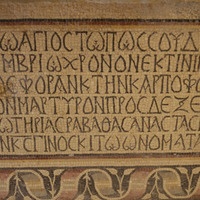 ΩΑΓΙΟCΤΩΠΩCCΟΥΔ
ΜΒΡΙΩΧΡΟΝΟΝΕΚΤΙΝΙ
ϹΦΟΡΑΝΚΤΗΝΚΑΡΠΟΦ
ΟΝΜΑΡΤΥΡΟΝΠΡΟCΔΕΞΕ
ΩΤΗΡΙΑCΡΑΒΑΘΑCΑΝΑCΤΑC
ΝΚCΓΙΝΟCΚΙΤΩΝΟΜΑΤΑ